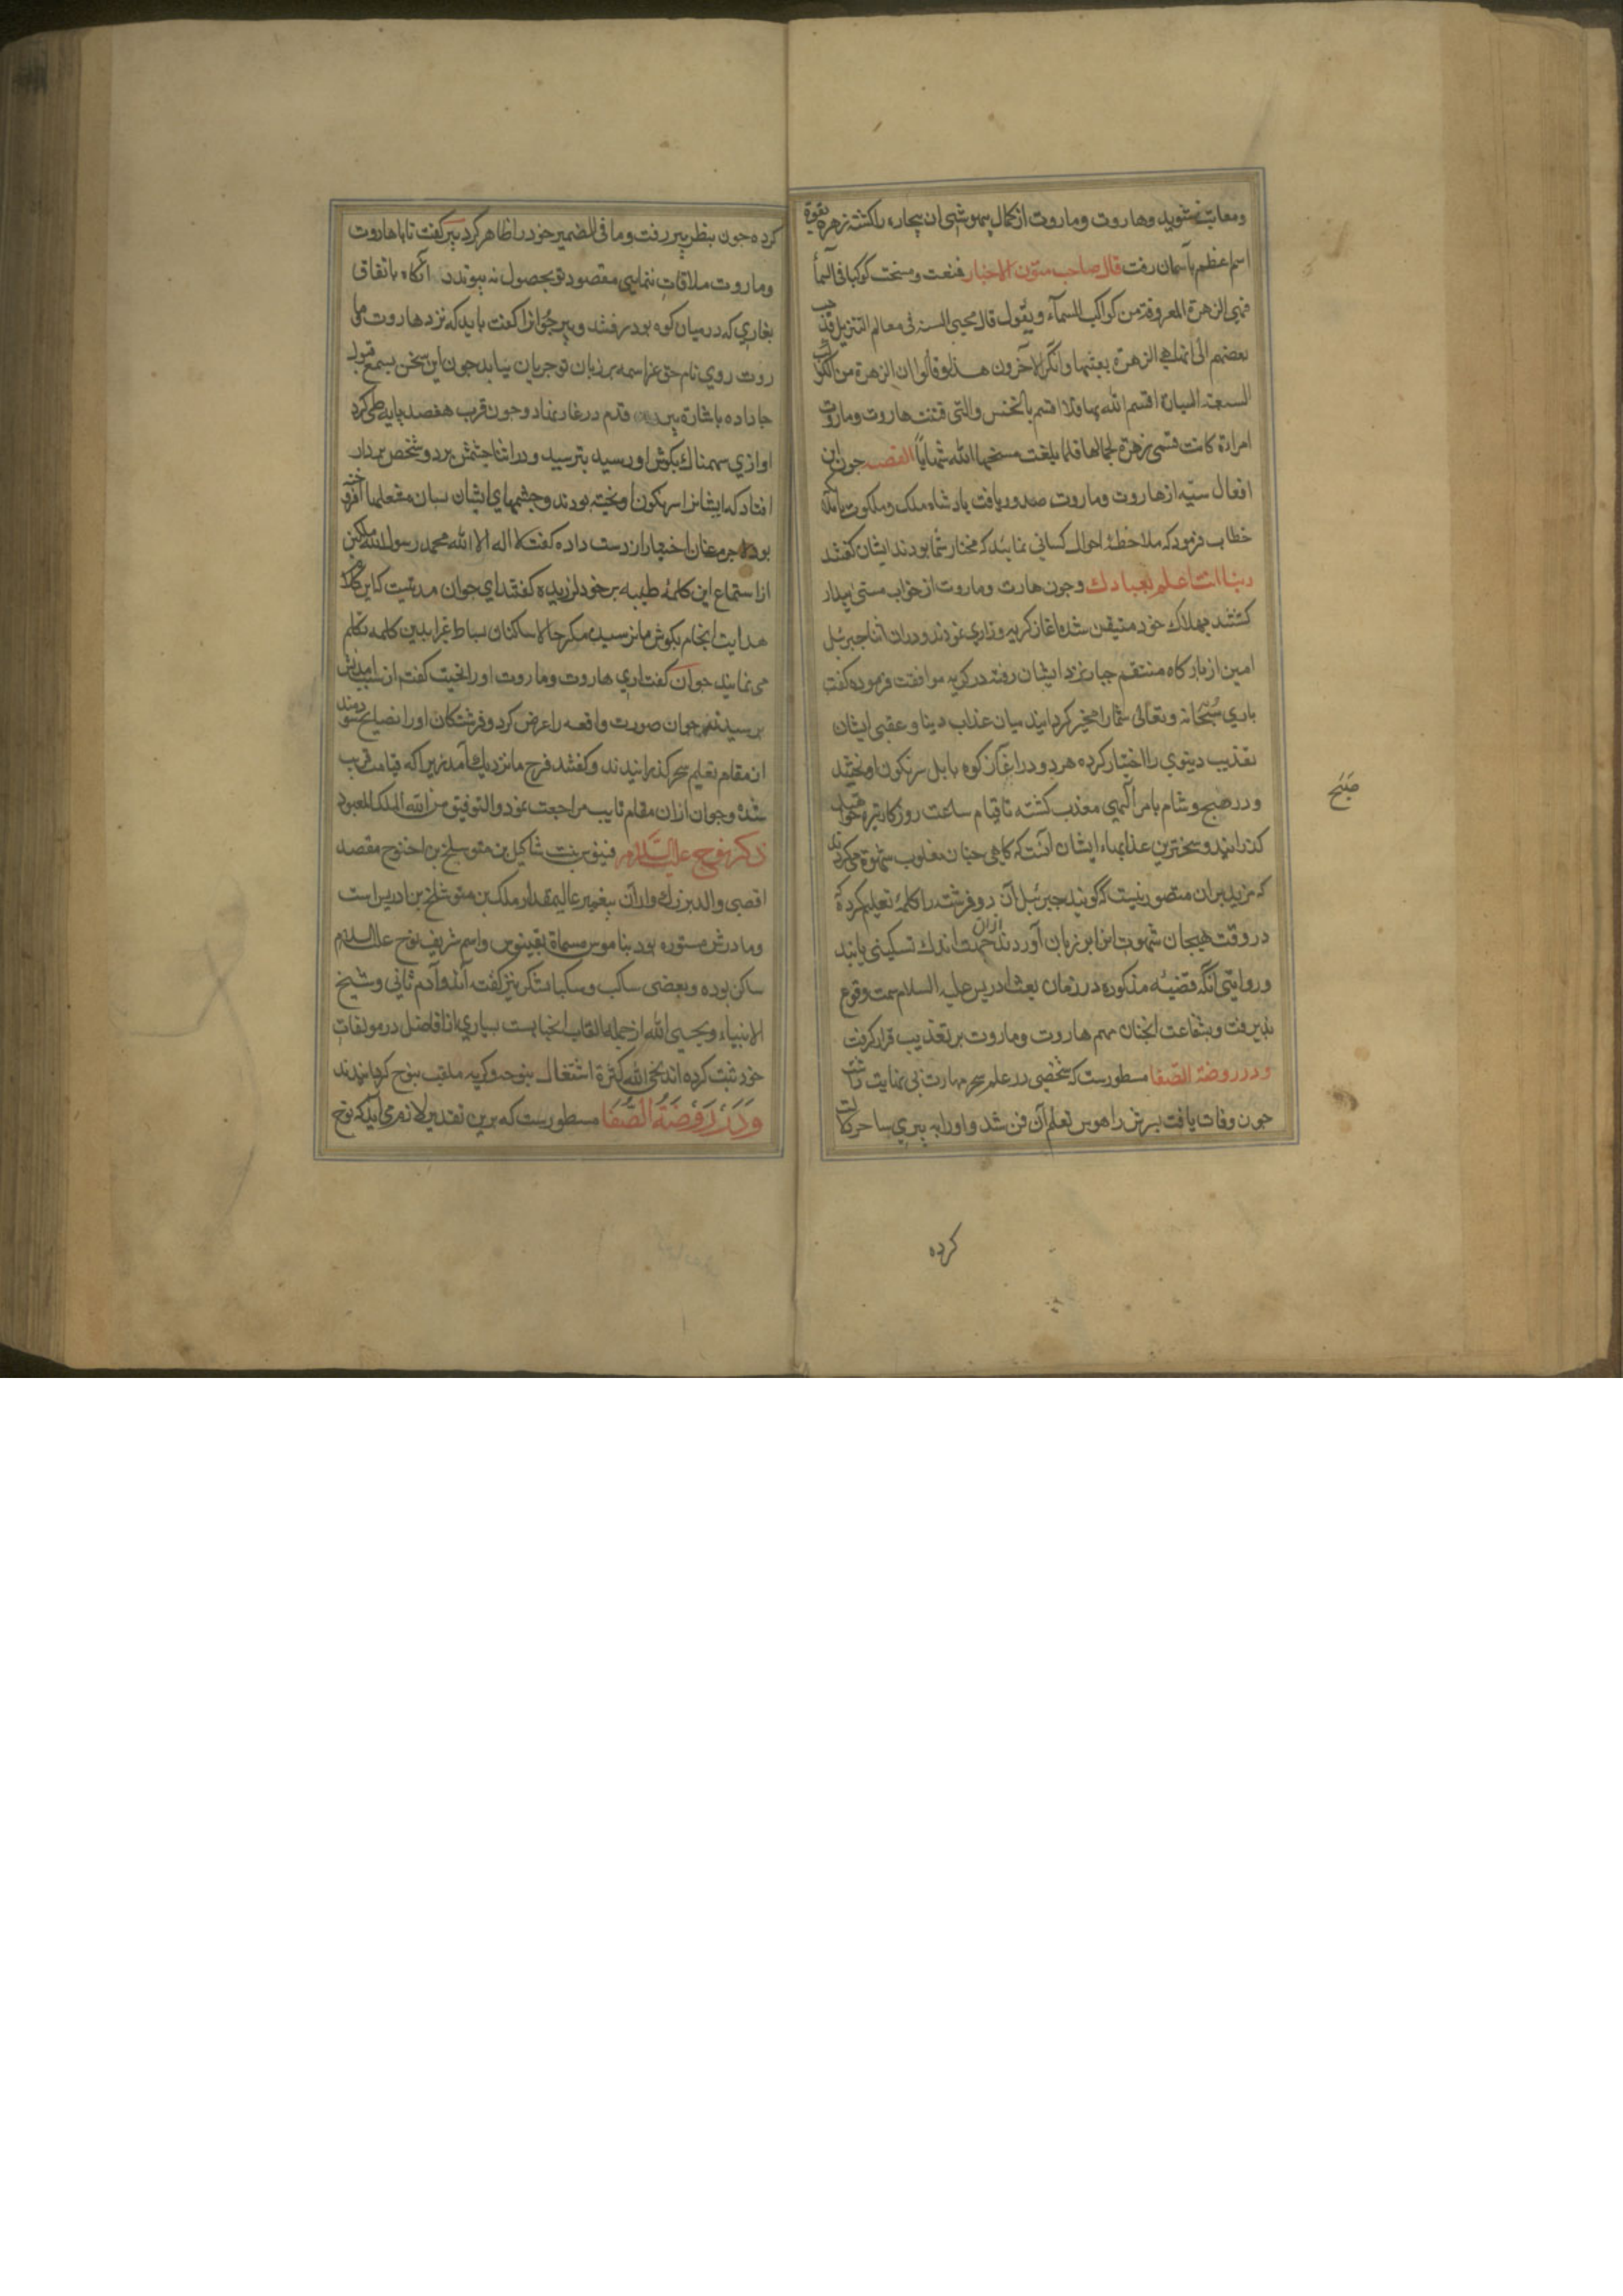 ومعاتب نشوید وهاروت وماروت از کمال بیهوشی ان بیچاره را کشته زهره بقوة
اسم اعظم باسمان رفت قال صاحب متون الاخبار فصعدت ومسخت کوکبا فی السمأ
فهی الزهرة المعروفة من کواکب السمآء ویقول قال محیی السنه فی معالم التنزیل فذهب
بعضهم الی انها هی الزهرة بعینها وانکر الآخرون هذا وقالوا ان الزهرة من الکواکب
السبعة السیارة اقسم الله بها فلا اقسم بالخنس والتی فتنت هاروت وماروت
امراة کانت تسمی زهرة لجمالها فلما بلغت مسخها الله شهابا القصه چون این
افعال سیّه از هاروت وماروت صدور یافت پادشاه ملک وملکوت باملائکه
خطاب فرمود که ملاحظهٔ احوال کسانی نمائید که مختار شما بودند ایشان کفتند
ربنا انت اعلم بعبادك وچون هارت وماروت از خواب مستی بیدار
کشتند بهلاك خود متیقن شده اغاز کریه وزاری نمودند ودران اثنا جبرئیل
امین از بارکاه منتقم جبار نزد ایشان رفته در کریه موافقت فرموده کفت
باری سُبْحَانه وتعالی شما را مخیّر کردانید میان عذاب دینا وعقبی ایشان
تعذیب دینوی را اختیار کرده هر دو در اغاز کوه بابل سرنکون اویختند
ودر صبح وشام بامر الهی معذب کشته تا قیام ساعت روزکار تیره خواهند
کذرانید وسختر‌ین عذابهاء ایشان آنست که کاهی چنان مغلوب شهوة می کردند
که مزید بران متصور نیست که گویند جبرئیل آن دو فرشته را کلمهٔ تعلیم کرده که
در وقت هیجان شهوت انرا بر زبان آوردند ازان زحمت اندك تسکینی یابند
وروایتی انکه قضیّه مذکوره در زمان بعث ادریس علیه السلام سمت وقوع
پذیرفت وبشفاعت انجنان مهم هاروت وماروت بر تعذیب قرار کرفت
ودر روضة الصّفا مسطورست که شخصی در علم سحر مهارت بی نهایت داشت
چون وفات یافت پسرش را هوس تعلم آن فن شد واو را به پیری ساحر
صَبَح
کرده
کرده چون بنظر پیر رفت وما فی الضمیر خود را ظاهر کرد پیر کفت تا باهاروت
وماروت ملاقات ننمایی مقصود تو بحصول نه پیوندد آنکاه باتفاق
بغاری که در میان کوه بود در رفتند وپیر جوانرا کفت باید که نزد هاروت وما
روت روی نام حق عز اسمه بر زبان تو جریان نیابد چون این سخن بسمع قبول
جا داده باشارة پیر قدم در غار نهاد وچون قرب هفصد پایه طی کرد
اوازی سهمناك بکوش او رسید بترسید ودر اثنا چشمش بر دو شخص بردار
افتاد که ایشانرا سرنکون اویخته بودند وچشمهای ایشان بسان مشعلها افروخته
بود جوان اختیار از دست داده کفت لا اله الا الله محمد رسول الله ملکین
از استماع این کلمهٔ طیبه بر خود لرزیده کفتند ای جوان مدتیست که این کلام
هدایت انجام بکوش ما نرسیده مکر حالا ساکنان بساط غبرا بدین کلمه تکلم
می نمایند جوان کفت اری هاروت وماروت اورا تحیت کفتند از سبب امدنش
پرسیدند جوان صورت واقعه را عرض کرد وفرشتکان اورا نصایح سودمند
از مقام تعلیم سحر کذرانیدند وکفتند فرج ما نزدیك آمد زیرا که قیامت قریب
شده وجوان ازان مقام تایب مراجعت نمود والتوفیق من الله الملك المعبود
ذکر نوح علیه السّلام فینوس بنت شاکیل بن متوسلخ بن اخنوخ مقصد
اقصی والد بزرك وار آن پیغمبر عالیمقدار ملک بن متوشلخ بن ادریس است
ومادرش مستوره بود بناموس مسماة بقینوس واسم شریف نوح علیه السلام
ساکن بوده وبعضی ساکب وسکبا یشکر نیز کفته آند وآدم ثانی وشیخ
الانبیاء ونجی الله از جمله القاب انجنابست بسیاری از افاضل در مولفات
خود ثبت کرده اند نجی الله کثرة اشتغال بنوحه وکریه ملقب بنوح کردانیدند
وَدَرْ رَوْضَةُ الصَّفَا مسطورست که برین تقدیر لازم می آید که نوح